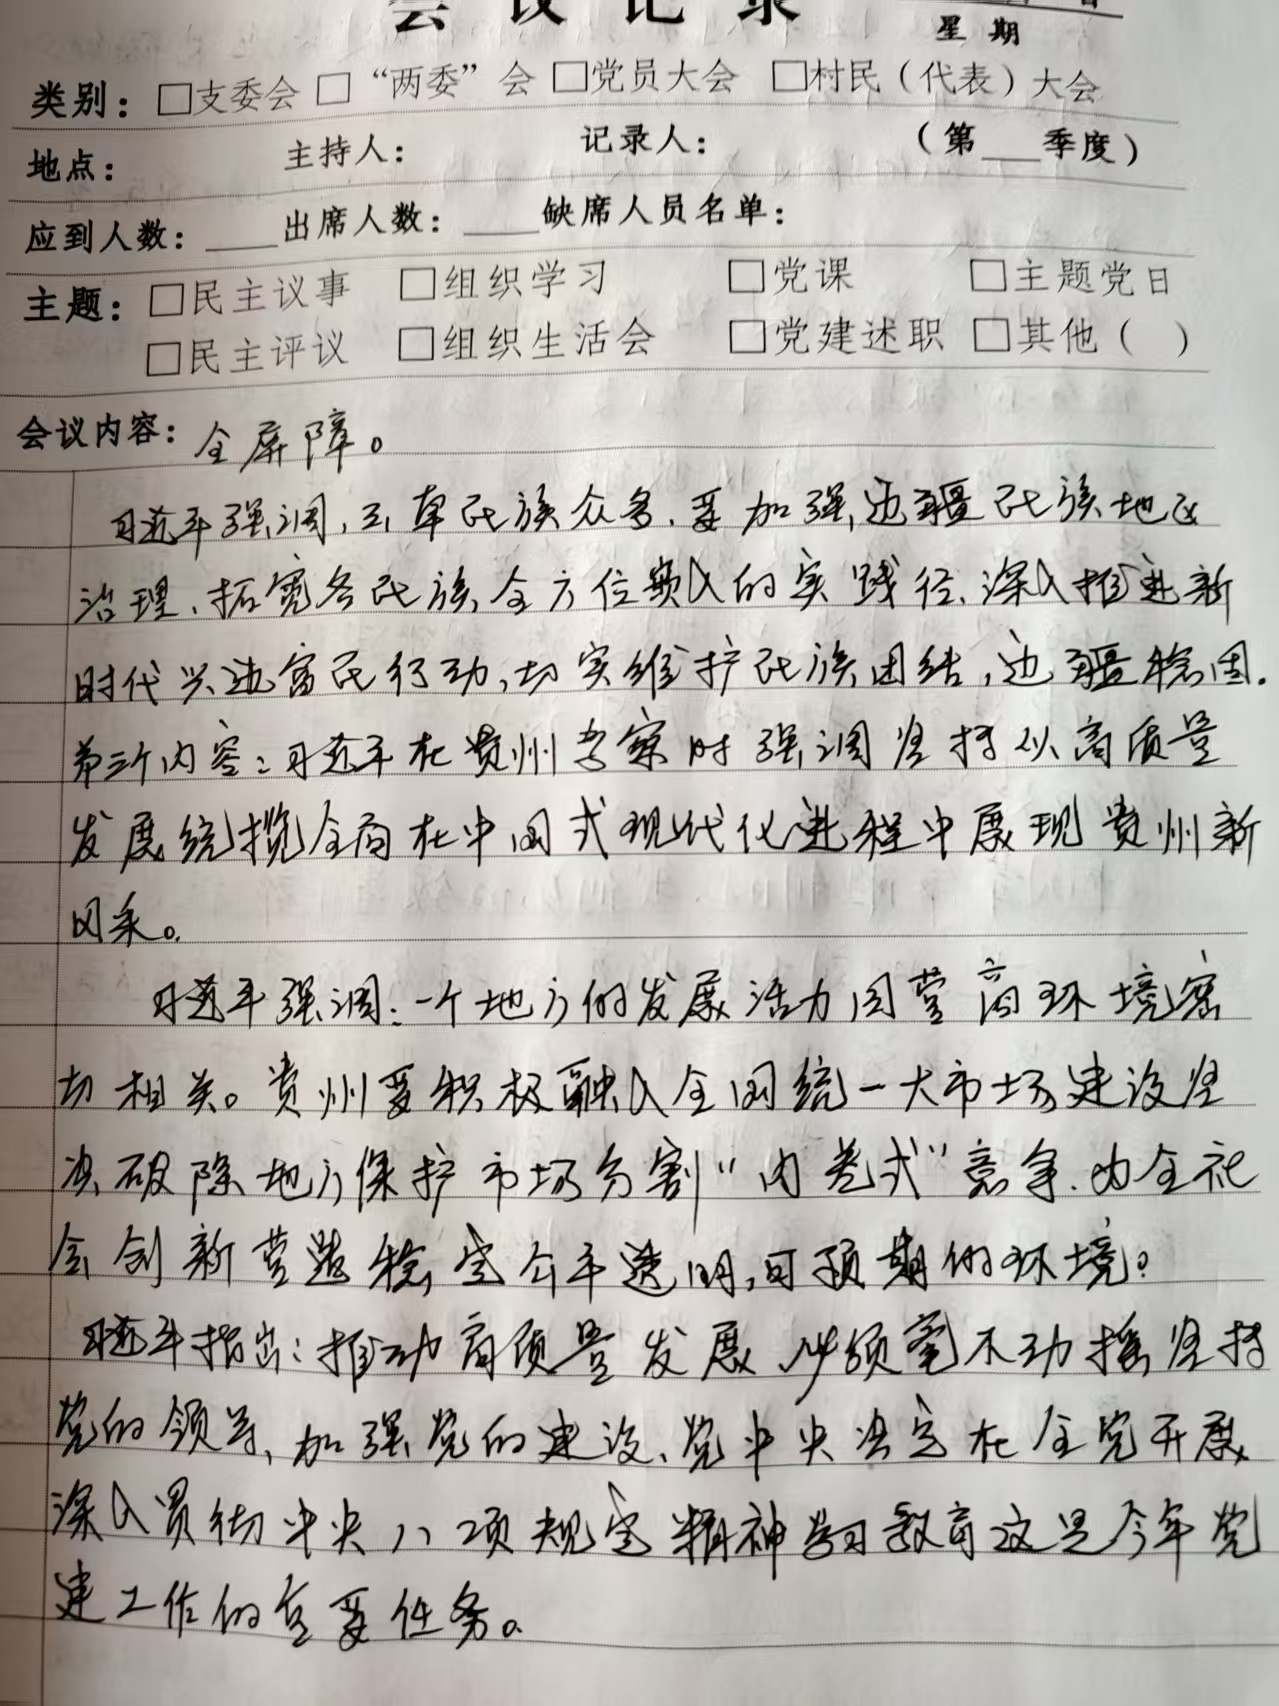 会议记录
星期
类别：□支委会 □“两委”会 □党员大会 □村民（代表）大会
地点： 主持人： 记录人： （第___季度）
应到人数：____出席人数：____缺席人员名单：
主题：□民主议事 □组织学习 □党课 □主题党日
□民主评议 □组织生活会 □党建述职 □其他（ ）
会议内容：全屏障。
习近平强调，云南民族众多，要加强边疆民族地区
治理、拓宽各民族全方位嵌入的实践径、深入推进新
时代兴边富民行动，切实维护民族团结，边疆稳固.
第三个内容：习近平在贵州考察时强调坚持以高质量
发展统揽全局在中国式现代化进程中展现贵州新
风采。
习近平强调：一个地方的发展活力同营商环境密
切相关。贵州要积极融入全国统一大市场建设坚
决破除地方保护市场分割“内卷式”竞争.为全社
会创新营造稳定公平透明，可预期的环境。
习近平指出：推动高质量发展必须毫不动摇坚持
党的领导、加强党的建设、党中央决定在全党开展
深入贯彻中央八项规定精神学习教育这是今年党
建工作的重要任务。